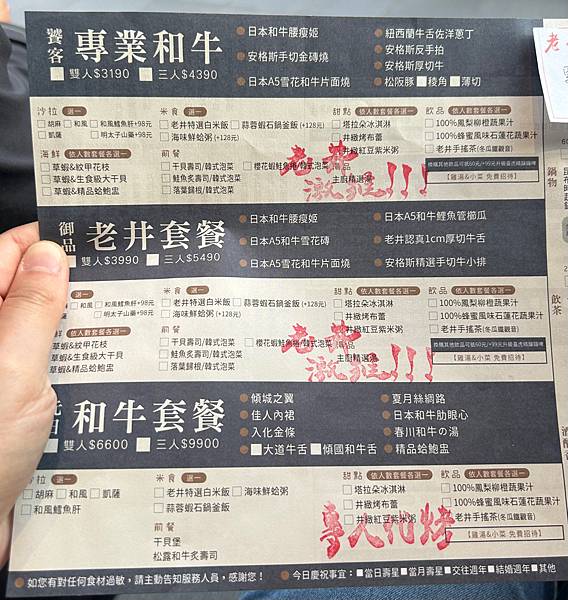 饕客 專業和牛
雙人$3190 三人$4390
日本和牛腰瘦姬
安格斯手切金磚燒
日本A5雪花和牛片面燒
紐西蘭牛舌佐洋蔥丁
安格斯反手拍
安格斯厚切牛
松阪豚 稜角 薄切
沙拉 選一
胡麻 和風 和風鱈魚肝+98元
凱薩 明太子山藥+98元
米食 選一
老井特選白米飯 蒜蓉蝦石鍋釜飯(+128元)
海味鮮蛤粥(+128元)
甜點 依人數套餐各選一
塔拉朵冰淇淋
井緻烤布蕾
井緻紅豆紫米粥
飲品 依人數套餐各選一
100%鳳梨柳橙蔬果汁
100%蜂蜜風味石蓮花蔬果汁
老井手搖茶(冬瓜鐵觀音)
海鮮 依人數套餐各選一
草蝦&紋甲花枝
草蝦&生食級大干貝
草蝦&精品蛤鮑盅
前餐
干貝壽司/韓式泡菜 櫻花蝦鮭魚捲/韓式泡菜
鮭魚炙壽司/韓式泡菜
落葉歸根/韓式泡菜
主廚精選湯
【雞湯&小菜 免費招待】
老井激推!!!
御品 老井套餐
雙人$3990 三人$5490
日本和牛腰瘦姬
日本A5和牛雪花磚
日本A5雪花和牛片面燒
日本A5和牛鯉魚管櫛瓜
老井認真1cm厚切牛舌
安格斯精選手切牛小排
沙拉 選一
胡麻 和風 和風鱈魚肝+98元
凱薩 明太子山藥+98元
米食 選一
老井特選白米飯 蒜蓉蝦石鍋釜飯(+128元)
海味鮮蛤粥(+128元)
甜點 依人數套餐各選一
塔拉朵冰淇淋
井緻烤布蕾
井緻紅豆紫米粥
飲品 依人數套餐各選一
100%鳳梨柳橙蔬果汁
100%蜂蜜風味石蓮花蔬果汁
老井手搖茶(冬瓜鐵觀音)
海鮮 依人數套餐各選一
草蝦&紋甲花枝
草蝦&生食級大干貝
草蝦&精品蛤鮑盅
前餐
干貝壽司/韓式泡菜 櫻花蝦鮭魚捲/韓式泡菜
鮭魚炙壽司/韓式泡菜
落葉歸根/韓式泡菜
主廚精選湯
【雞湯&小菜 免費招待】
老井激推!!!
和牛套餐
雙人$6600 三人$9900
傾城之翼
佳人內裙
入化金條
大道牛舌 傾國和牛舌
夏月絲綢路
日本和牛肋眼心
春川和牛の湯
精品蛤鮑盅
沙拉 選一
胡麻 和風 凱薩
和風鱈魚肝
米食 選一
老井特選白米飯 海味鮮蛤粥
蒜蓉蝦石鍋釜飯
前餐
干貝堡
松露和牛炙壽司
甜點 依人數套餐各選一
塔拉朵冰淇淋
井緻烤布蕾
井緻紅豆紫米粥
飲品 依人數套餐各選一
100%鳳梨柳橙蔬果汁
100%蜂蜜風味石蓮花蔬果汁
老井手搖茶(冬瓜鐵觀音)
【雞湯&小菜 免費招待】
專人代烤
如您有對任何食材過敏,請主動告知服務人員,感謝您!
今日慶祝事宜:當日壽星 當月壽星 交往週年 結婚週年 其他
鍋物
飲茶